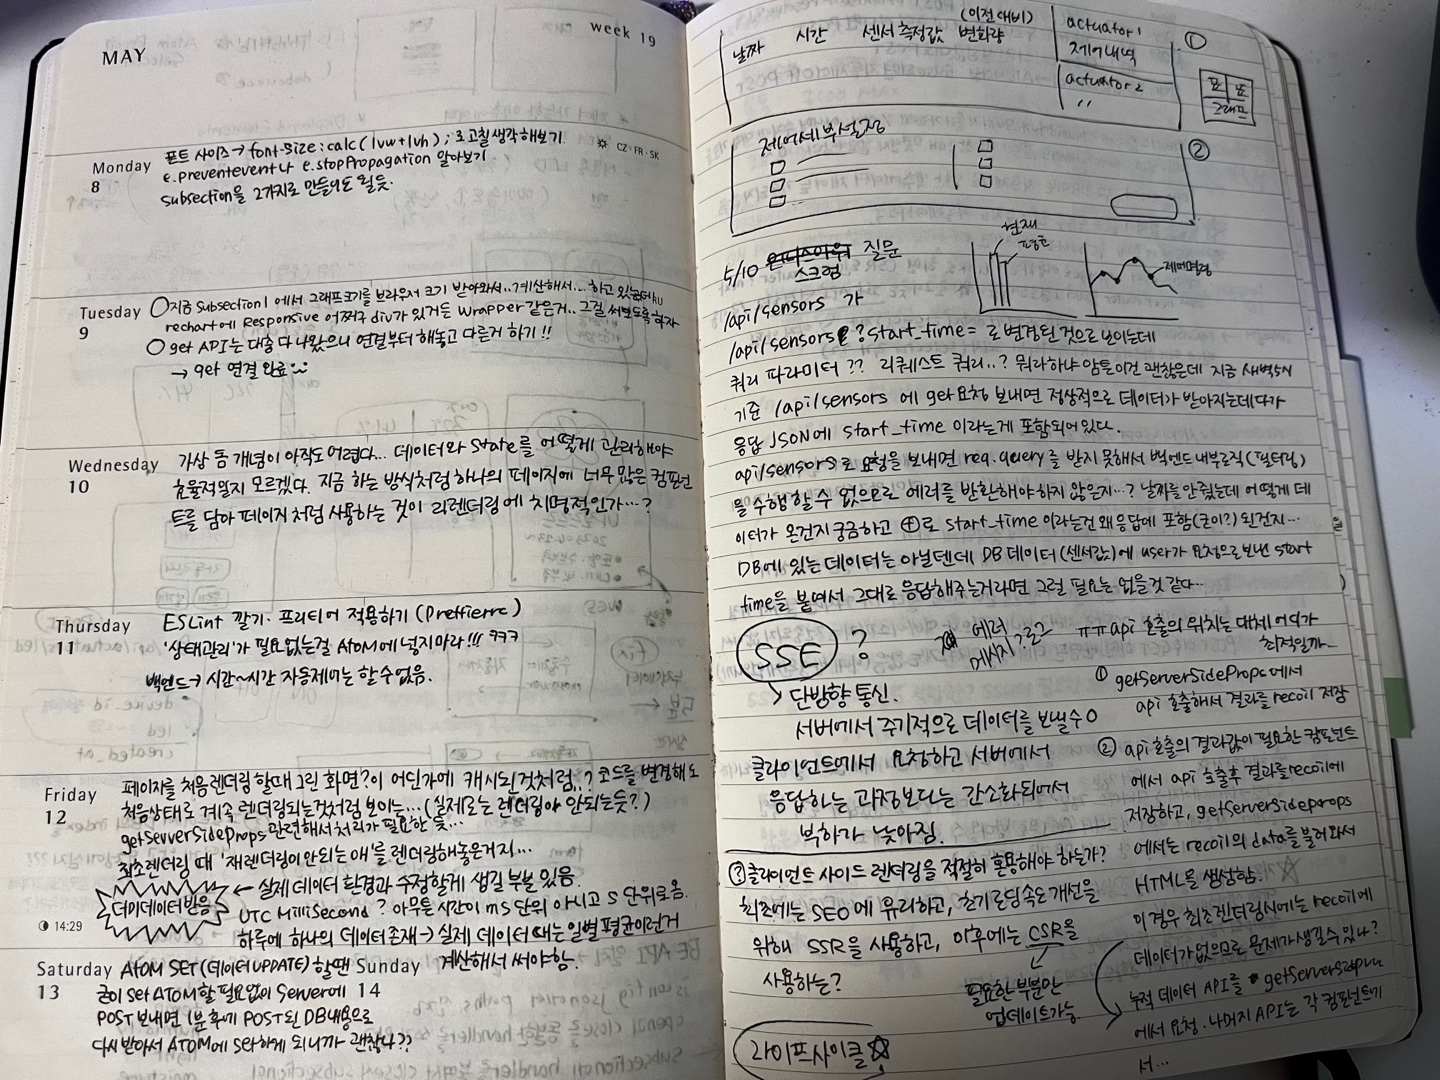 MAY
week 19
Monday
8
폰트 사이즈 → font-size : calc ( 1vw + 1vh ) ; 로 고칠 생각해보기.
e.preventevent나 e.stopPropagation 알아보기
subsection을 2가지로 만들어도 될듯.
CZ · FR · SK
Tuesday
9
지금 Subsection1 에서 그래프크기를 브라우저 크기 받아와서.. 계산해서... 하고 있는데
rechart에 Responsive 어쩌구 div가 있거든 wrapper 같은거.. 그걸 써보도록 하자
get API는 대충 다 나왔으니 연결부터 해놓고 다른거 하기 !!
→ get 연결 완료
Wednesday
10
가상 돔 개념이 아직도 어렵다... 데이터와 State를 어떻게 관리해야
효율적일지 모르겠다. 지금 하는 방식처럼 하나의 페이지에 너무 많은 컴포넌
트를 담아 페이지처럼 사용하는 것이 리렌더링에 치명적인가...?
Thursday
11
ESLint 깔기. 프리티어 적용하기 (Prettierrc)
'상태관리'가 필요없는걸 Atom에 넣지마라!!! ㅋㅋㅋ
백엔드 → 시간~시간 자동제어는 할 수 없음.
Friday
12
14:29
페이지를 처음 렌더링 할때 그린 화면?이 어딘가에 캐시된것처럼..? 코드를 변경해도
처음상태로 계속 렌더링되는것처럼 보이는...(실제로는 렌더링이 안되는듯?)
getServerSideProps 관련해서 처리가 필요한 듯...
최초렌더링 때 '재렌더링이 안되는 애'를 렌더링해놓은거지...
더미데이터받음
← 실제 데이터 환경과 수정할게 생길 부분 있음.
UTC Millisecond ? 아무튼 시간이 ms 단위 아니고 s 단위로옴.
하루에 하나의 데이터 존재 → 실제 데이터 때는 일별 평균이런거
계산해서 써야함.
Saturday
13
ATOM SET (데이터 UPDATE) 할땐
굳이 Set ATOM 할 필요없이 Server에
POST 보내면 1분 후에 POST된 DB 내용으로
다시 받아서 ATOM에 set하게 되니까 괜찮나??
Sunday
14
날짜 시간 센서 측정값 (이전 대비) 변화량
actuator 1
제어내역
actuator 2
〃
①
표 표
그래프
제어세부설정
②
5/10 스크럼 질문
현재
평균
제어명령
/api/sensors 가
/api/sensors ? start_time = 로 변경된 것으로 보이는데
쿼리 파라미터 ?? 리퀘스트 쿼리..? 뭐라하냐 암튼 이건 괜찮은데 지금 새벽5시
기준 /api/sensors 에 get 요청 보내면 정상적으로 데이터가 받아지는데다가
응답 JSON에 start_time 이라는게 포함되어있다.
api/sensors로 요청을 보내면 req.query를 받지 못해서 백엔드 내부로직(필터링)
을 수행할 수 없으므로 에러를 반환해야하지 않은지...? 날짜를 안줬는데 어떻게 데
이터가 온건지 궁금하고 ⊕로 start_time 이라는건 왜 응답에 포함(굳이?) 된건지...
DB에 있는 데이터는 아닐텐데 DB 데이터(센서값)에 user가 요청으로 보낸 start
time을 붙여서 그대로 응답해주는거라면 그럴 필요는 없을것 같다...
SSE ?
에러
메시지 ?
→ 단방향 통신.
서버에서 주기적으로 데이터를 보낼수 O
클라이언트에서 요청하고 서버에서
응답하는 과정보다는 간소화되어서
부하가 낮아짐.
ㅠㅠ api 호출의 위치는 대체 어디가
최적일까...
① getServerSideProps에서
api 호출해서 결과를 recoil 저장
② api 호출의 결과값이 필요한 컴포넌트
에서 api 호출후 결과를 recoil에
저장하고, getServerSideprops
에서는 recoil의 data를 불러와서
HTML을 생성함.
이 경우 최초렌더링시에는 recoil에
데이터가 없으므로 문제가 생길수 있나?
누적 데이터 API를 getServerSideprops
에서 요청. 나머지 API는 각 컴포넌트에
서...
③ 클라이언트 사이드 렌더링을 적절히 혼용해야 하는가?
최초에는 SEO에 유리하고, 초기로딩속도 개선을
위해 SSR을 사용하고, 이후에는 CSR을
사용하는?
필요한 부분만
업데이트가능.
라이프사이클